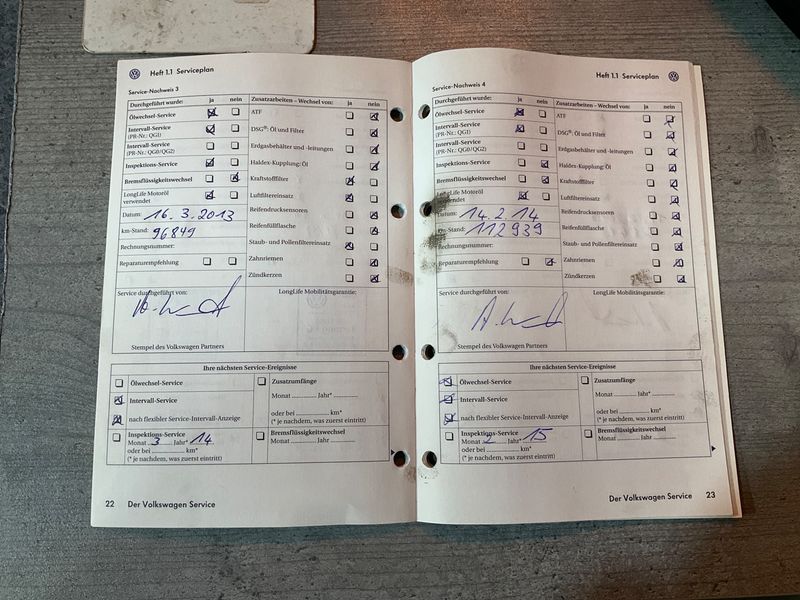 Heft 1.1 Serviceplan
Service-Nachweis 3
Durchgeführt wurde: ja nein Zusatzarbeiten – Wechsel von: ja nein
Ölwechsel-Service ATF
Intervall-Service
(PR-Nr.: QG1) DSG®: Öl und Filter
Intervall-Service
(PR-Nr.: QG0/QG2) Erdgasbehälter und -leitungen
Inspektions-Service Haldex-Kupplung: Öl
Bremsflüssigkeitswechsel Kraftstofffilter
LongLife Motoröl
verwendet Luftfiltereinsatz
Datum: 16.3.2013 Reifendrucksensoren
km-Stand: 96849 Reifenfüllflasche
Rechnungsnummer: Staub- und Pollenfiltereinsatz
Reparaturempfehlung Zahnriemen
Zündkerzen
Service durchgeführt von: LongLife Mobilitätsgarantie:
Stempel des Volkswagen Partners
Ihre nächsten Service-Ereignisse
Ölwechsel-Service Zusatzumfänge
Monat ........... Jahr* ...........
Intervall-Service
oder bei ........... km*
nach flexibler Service-Intervall-Anzeige (* je nachdem, was zuerst eintritt)
Inspektions-Service Bremsflüssigkeitswechsel
Monat 3 Jahr* 14 Monat ........... Jahr ...........
oder bei ........... km*
(* je nachdem, was zuerst eintritt)
22 Der Volkswagen Service
Heft 1.1 Serviceplan
Service-Nachweis 4
Durchgeführt wurde: ja nein Zusatzarbeiten – Wechsel von: ja nein
Ölwechsel-Service ATF
Intervall-Service
(PR-Nr.: QG1) DSG®: Öl und Filter
Intervall-Service
(PR-Nr.: QG0/QG2) Erdgasbehälter und -leitungen
Inspektions-Service Haldex-Kupplung: Öl
Bremsflüssigkeitswechsel Kraftstofffilter
LongLife Motoröl
verwendet Luftfiltereinsatz
Datum: 14.2.14 Reifendrucksensoren
km-Stand: 112939 Reifenfüllflasche
Rechnungsnummer: Staub- und Pollenfiltereinsatz
Reparaturempfehlung Zahnriemen
Zündkerzen
Service durchgeführt von: LongLife Mobilitätsgarantie:
Stempel des Volkswagen Partners
Ihre nächsten Service-Ereignisse
Ölwechsel-Service Zusatzumfänge
Monat ........... Jahr* ...........
Intervall-Service
oder bei ........... km*
nach flexibler Service-Intervall-Anzeige (* je nachdem, was zuerst eintritt)
Inspektions-Service Bremsflüssigkeitswechsel
Monat 2 Jahr* 15 Monat ........... Jahr ...........
oder bei ........... km*
(* je nachdem, was zuerst eintritt)
Der Volkswagen Service 23